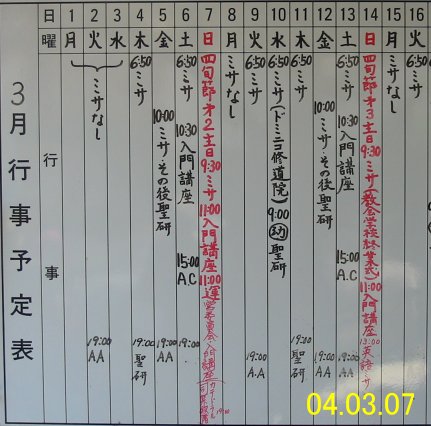 3月行事予定表
日 1 2 3 4 5 6 7 8 9 10 11 12 13 14 15 16
曜 月 火 水 木 金 土 日 月 火 水 木 金 土 日 月 火
行事
ミサなし
19:00 AA
6:50 ミサ
19:00 聖研
10:00 ミサ・その後聖研
19:00 AA
6:50 ミサ 10:30 入門講座 15:00 A.C
19:00
四旬節・第2主日 9:30 ミサ 11:00 入門講座 11:00 運営委員会
ミサなし
6:50 ミサ
19:00 A.A
6:50 ミサ(ドミニコ修道院) 9:00 納 聖研
6:50 ミサ
19:00 聖研
10:00 ミサ・その後聖研
19:00 AA
6:50 ミサ 10:30 入門講座 15:00 A.C
19:00 A.A
四旬節・第3主日 9:30 ミサ(教会学校終業式) 11:00 入門講座 英語ミサ
ミサなし
6:50
04.03.07